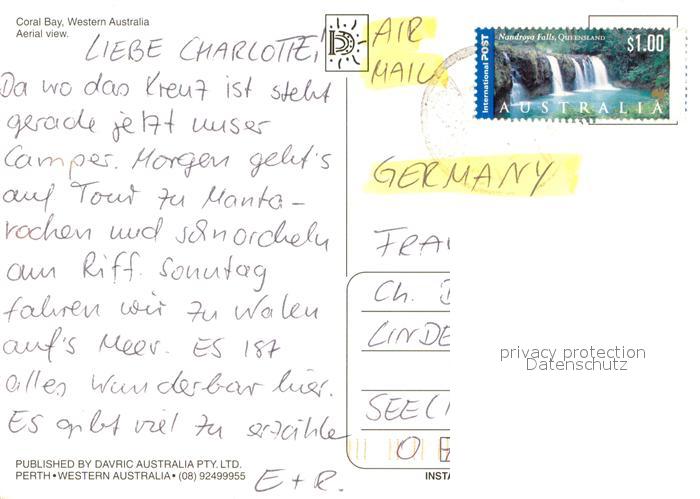 Coral Bay, Western Australia
Aerial view.
LIEBE CHARLOTTE,
Da wo das Kreuz ist steht
gerade jetzt unser
Camper. Morgen geht's
auf Tour zu Manta-
rochen und schnorcheln
am Riff. Sonntag
fahren wir zu Walen
auf's Meer. ES IST
alles wunderbar hier.
Es gibt viel zu erzählen
E + R.
PUBLISHED BY DAVRIC AUSTRALIA PTY. LTD.
PERTH • WESTERN AUSTRALIA • (08) 92499955
D
AIR
MAIL
International POST
Nandroya Falls, QUEENSLAND
$1.00
AUSTRALIA
GERMANY
FRA
Ch.
LINDE
SEE
INSTA
privacy protection
Datenschutz